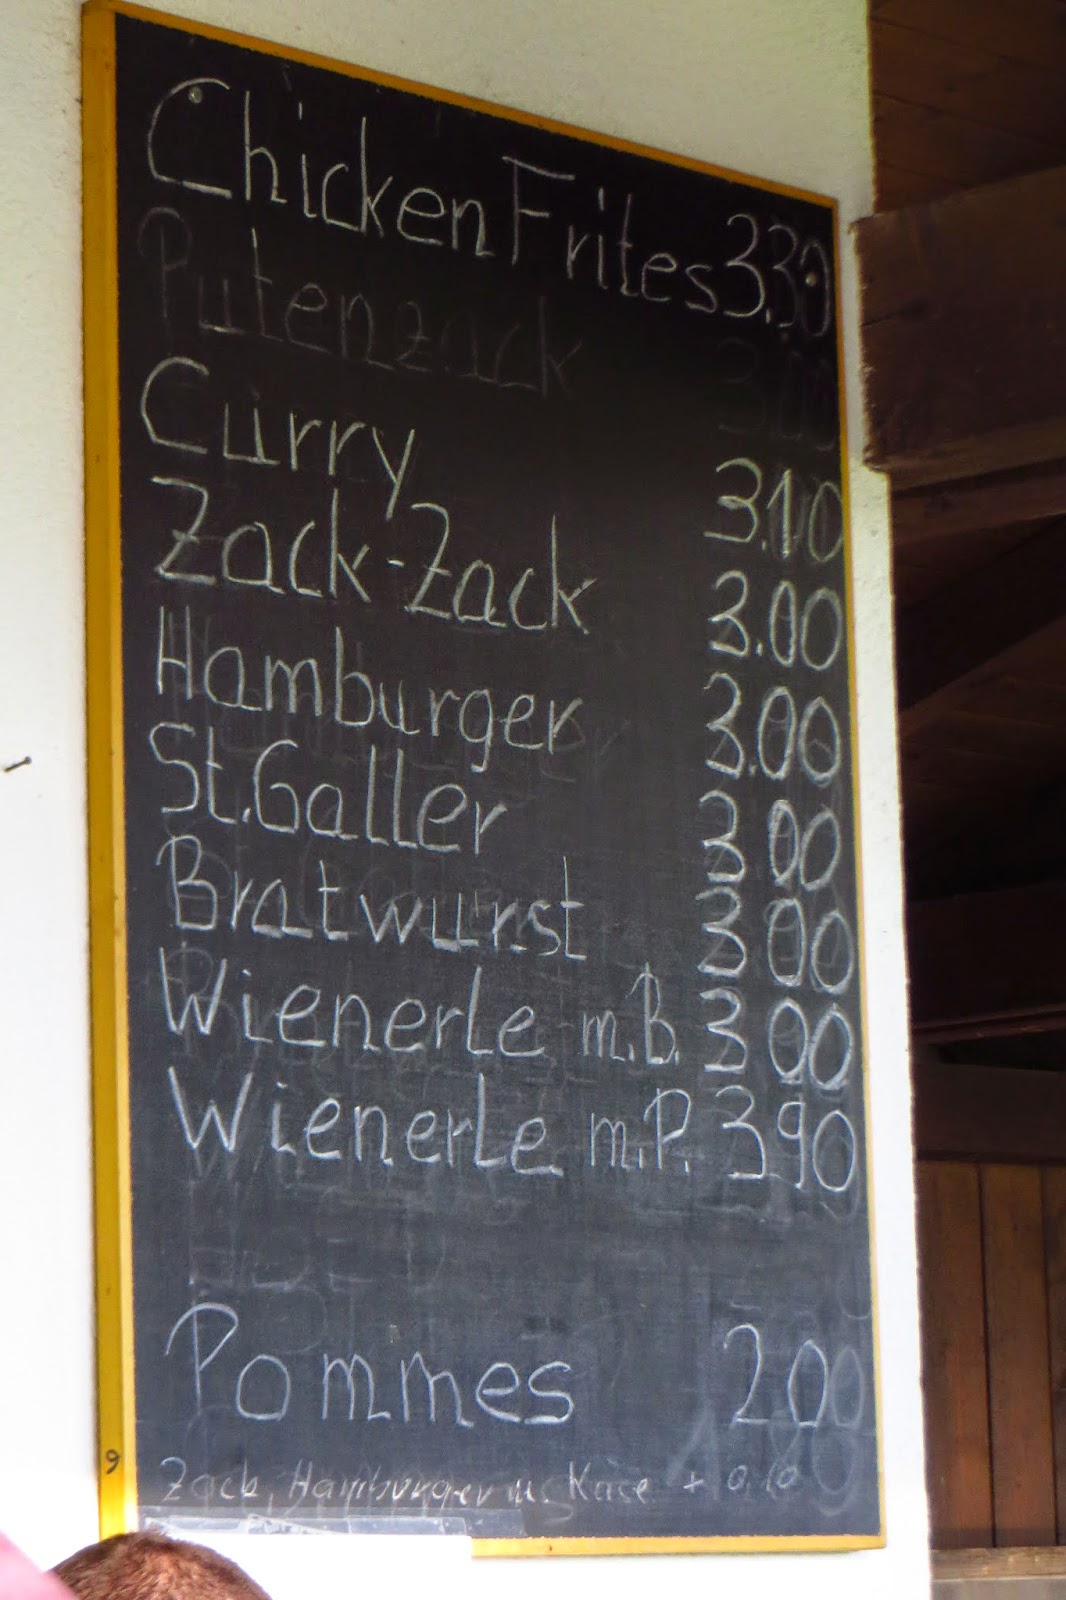 Chicken Frites 3.30
Putenzack 3.00
Curry 3.10
Zack-Zack 3.00
Hamburger 3.00
St.Galler 3 00
Bratwurst 3 00
Wienerle m.B. 3 00
Wienerle m.P. 3 90
Pommes 2 00
Zack, Hamburger m. Käse + 0,10
9